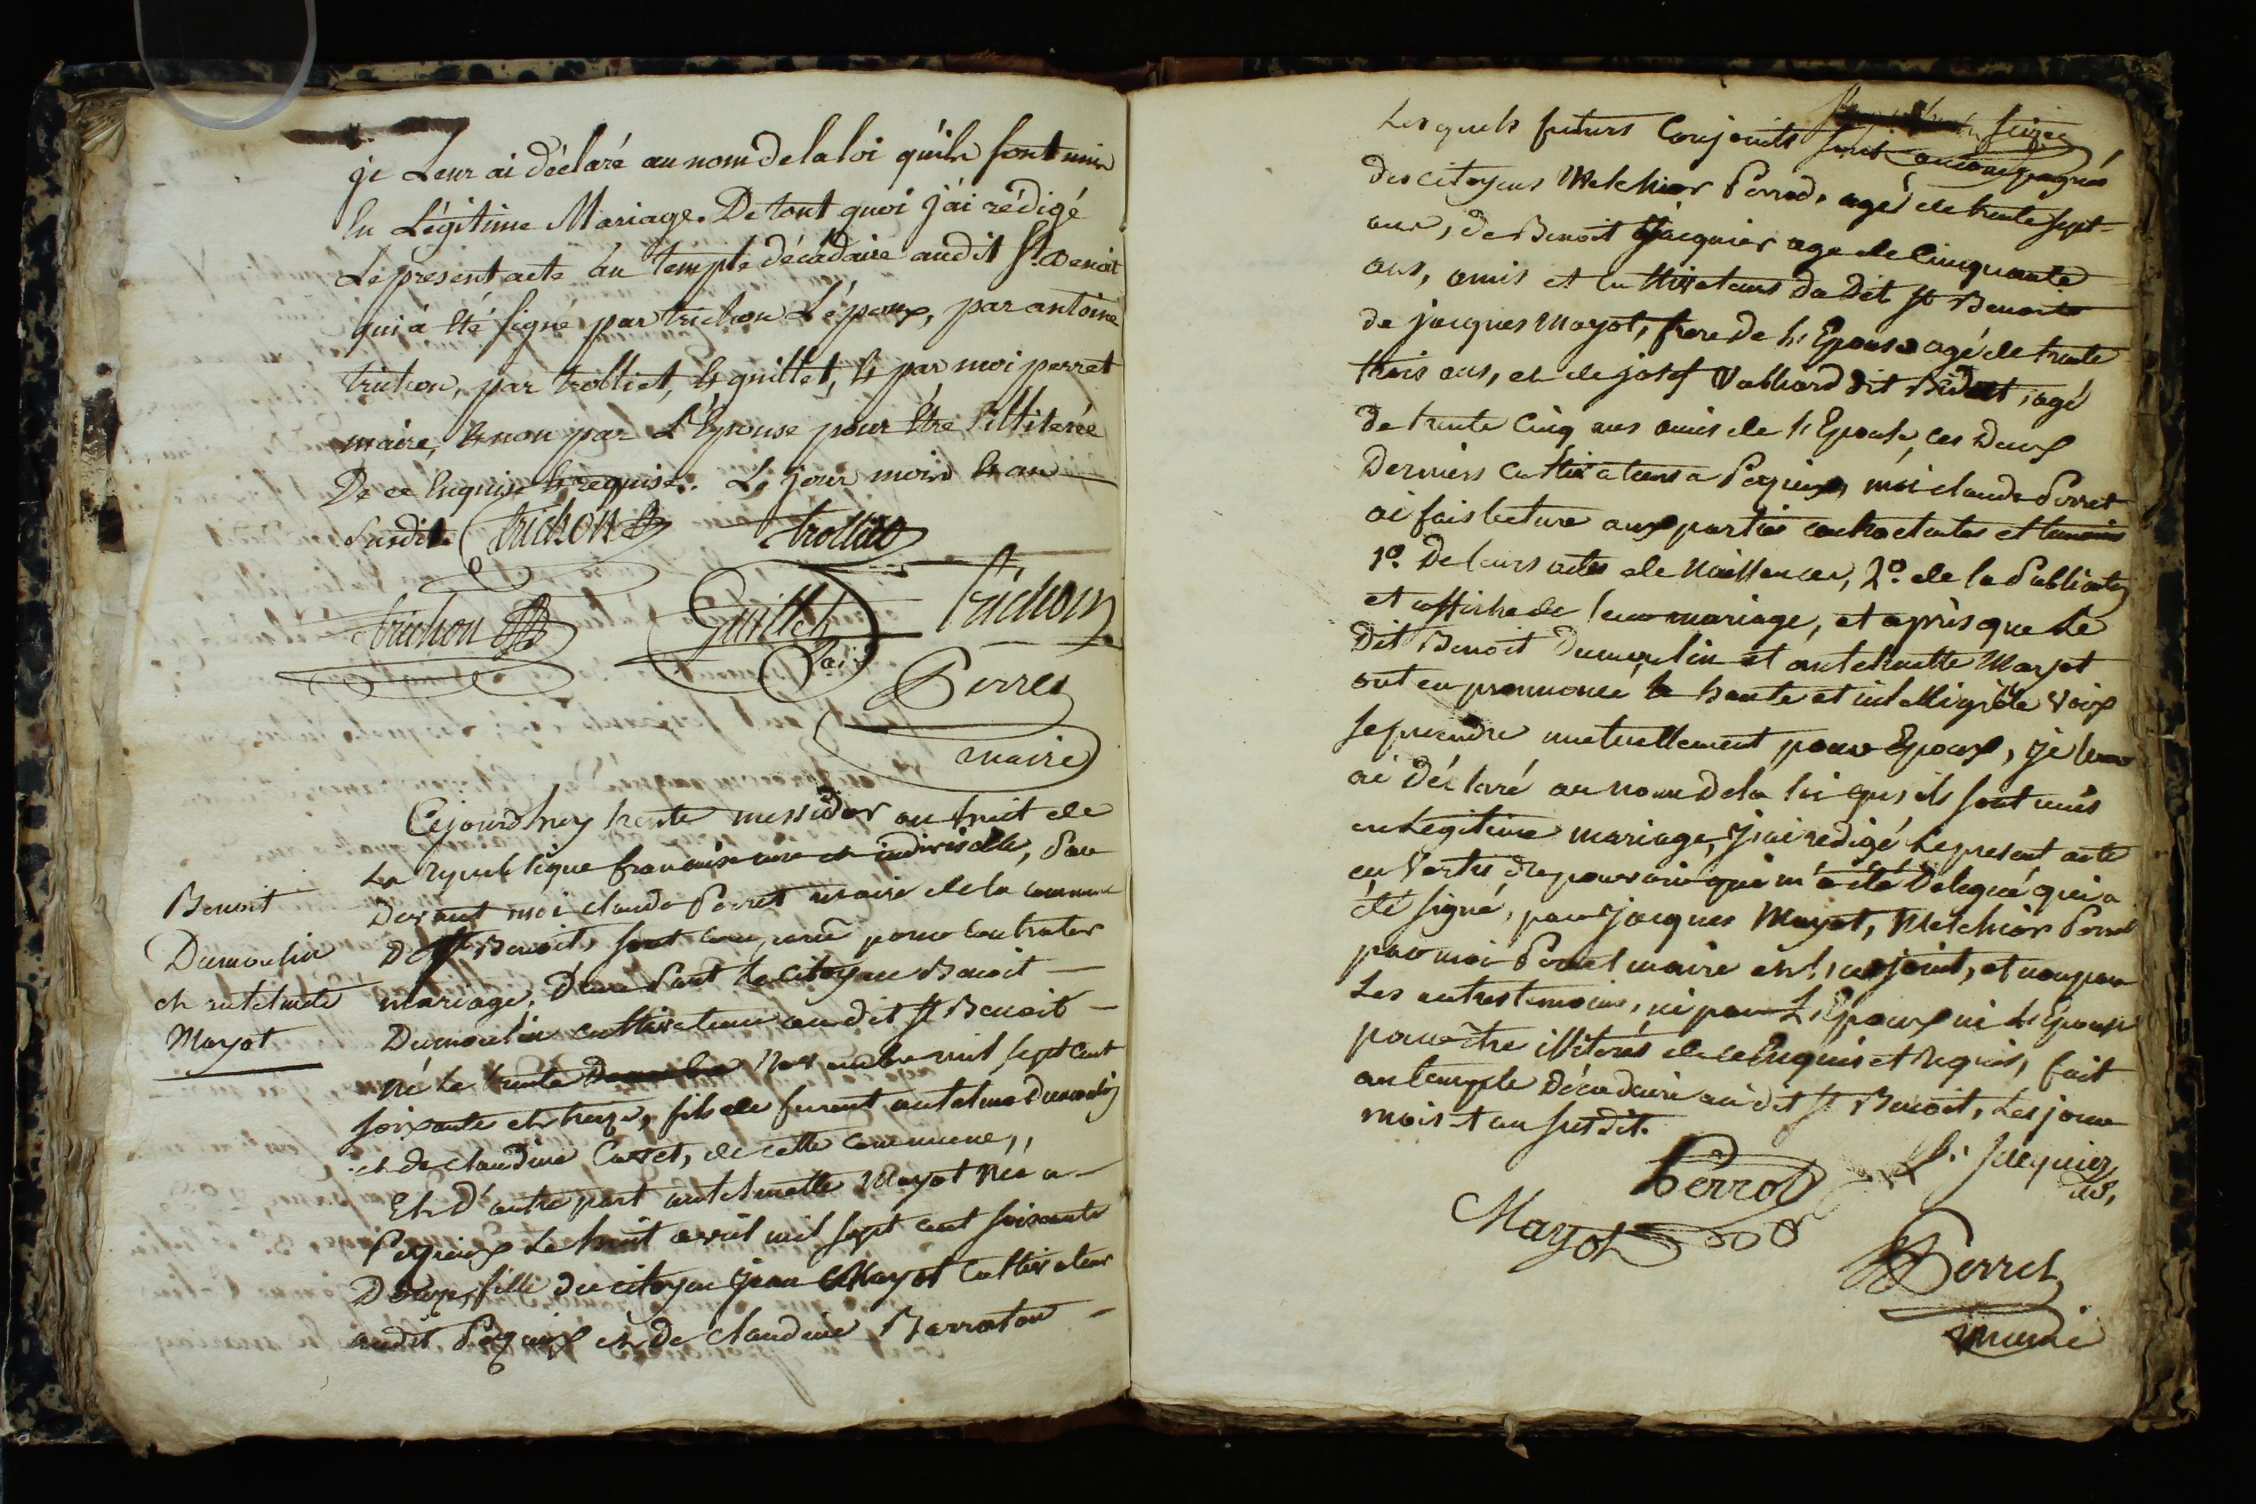 je Leur ai déclaré au nom de la loi qu'ils sont unis
En Légitime Mariage. De tout quoi j'ai rédigé
Le present acte au temple décadaire audit St. Benoit
qui a été signé par trichon L'époux, par antoine
trichon, par trolliet, & guillet, & par moi perret
maire, & non par L'Epouse pour Etre illiterée
De ce Enquise & requise. Le jour mois & an
Susdit. trichon trolliet
trichon Guillet trichon
Perret
maire
Benoit
Dumoulin
et antelmette
Mayot
Cejourdhuy trente messidor an huit de
La republique francaise une et indivisible, Par
Devant moi claude Perret maire de la commune
De St Benoit, sont comparu pour contracter
mariage, D'une Part Le citoyen Benoit
Dumoulin cultivateur au dit St Benoit
Né Le trente Novembre mil sept cent
soixante et treize, fils de furent antelme Dumoulin
et de claudine Carret, de cette commune,
Et D'autre part antelmette Mayot Née a
Peyrieux Le huit avril mil sept cent soixante
Douze, fille du citoyen jean Mayot Cultivateur
audit Peyrieux et De claudine Barraton
Lesquels futurs Conjoints sont accompagnés
des citoyens Melchior Perrod, agé de trente sept
ans, de Benoit Jacquier age de Cinquante
ans, amis et cultivateurs du Dit St Benoit
de jacques Mayot, frere de l'Epouse agé de trente
trois ans, et de josef Vulliard dit Bidet, agé
de trente Cinq ans amis de l'Epouse, ces Deux
Derniers Cultivateurs a Peyrieux, moi claude Perret
ai fais lecture aux parties contractantes et temoins
1º. De leurs actes de Naissances, 2º. de la Publication
et affiche de leur mariage, et après que Le
Dit Benoit Dumoulin et antelmette Mayot
ont eu prononcé a haute et intelligible Voix
se prendre mutuellement pour Epoux, je leur
ai Déclaré au nom De la loi qu'ils sont unis
en Legitime mariage, j'ai redigé Le present acte
en Vertu du pouvoir qui m'a été Delegué qui a
été signé, par jacques Mayot, Melchior Perrod
par moi Perret maire et l'adjoint, et non par
Les autres temoins, ni par L'Epoux ni L'Epouse
pour être illiterés de ce Enquis et Requis, fait
au temple Décadaire au dit St Benoit, Les jour
mois et an susdit.
Perrod Bt Jacquier
adj.
Mayot
Perret
maire